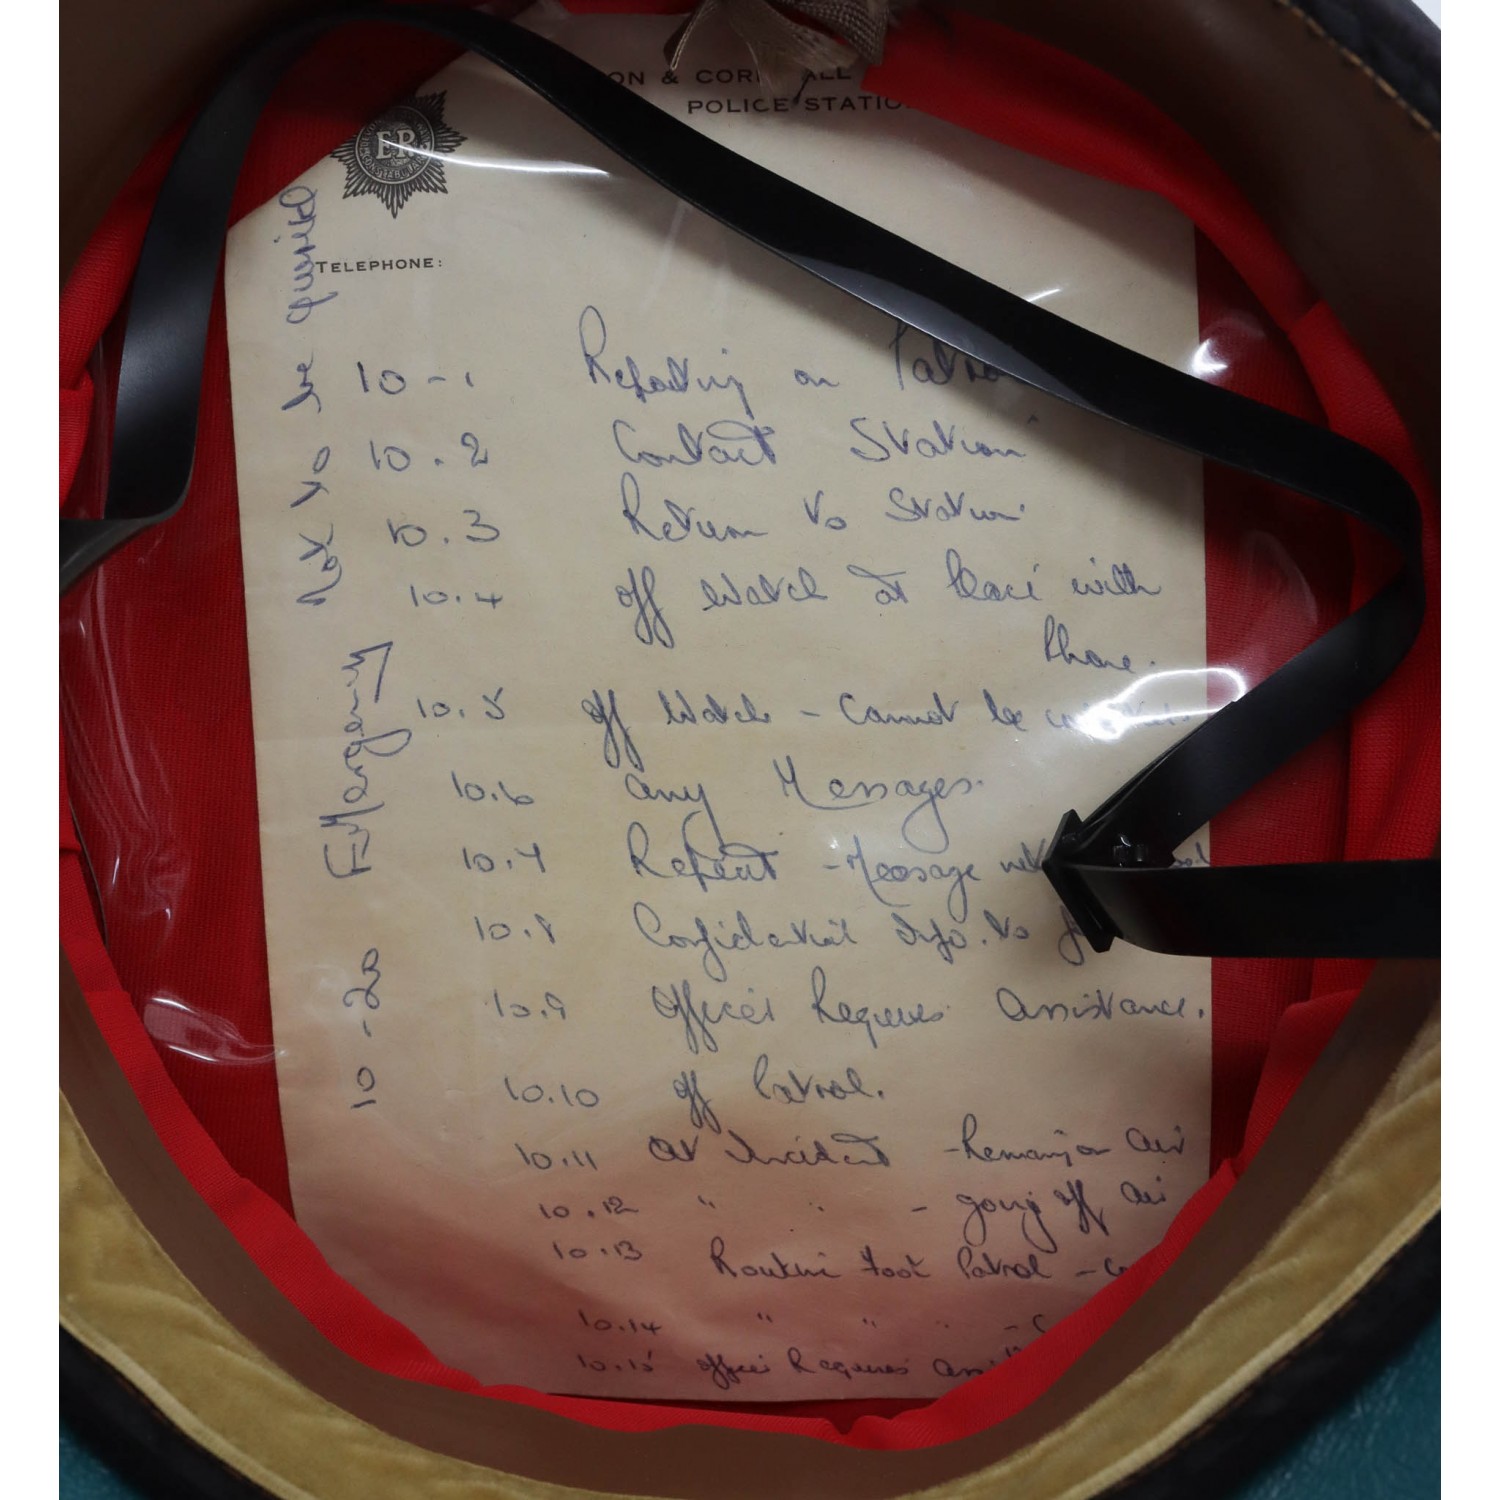 ON & COR ALL
POLICE STATIO
ER
TELEPHONE:
10-1 Reporting on Patrol
10.2 Contact Station
10.3 Return to Station
10.4 off Watch at place with
Phone.
10.5 off Watch - Cannot be
10.6 any Messages.
10.7 Repeat - Message
10.8 Confidential Info. to
10.9 Officer Requires Assistance.
10.10 off Patrol.
10.11 at Incident - Remaing on air
10.12 " " - going off air
10.13 Routine foot Patrol - C
10.14 " " " - C
10.15 officer Requires
10-20 EMergency Not to be queried